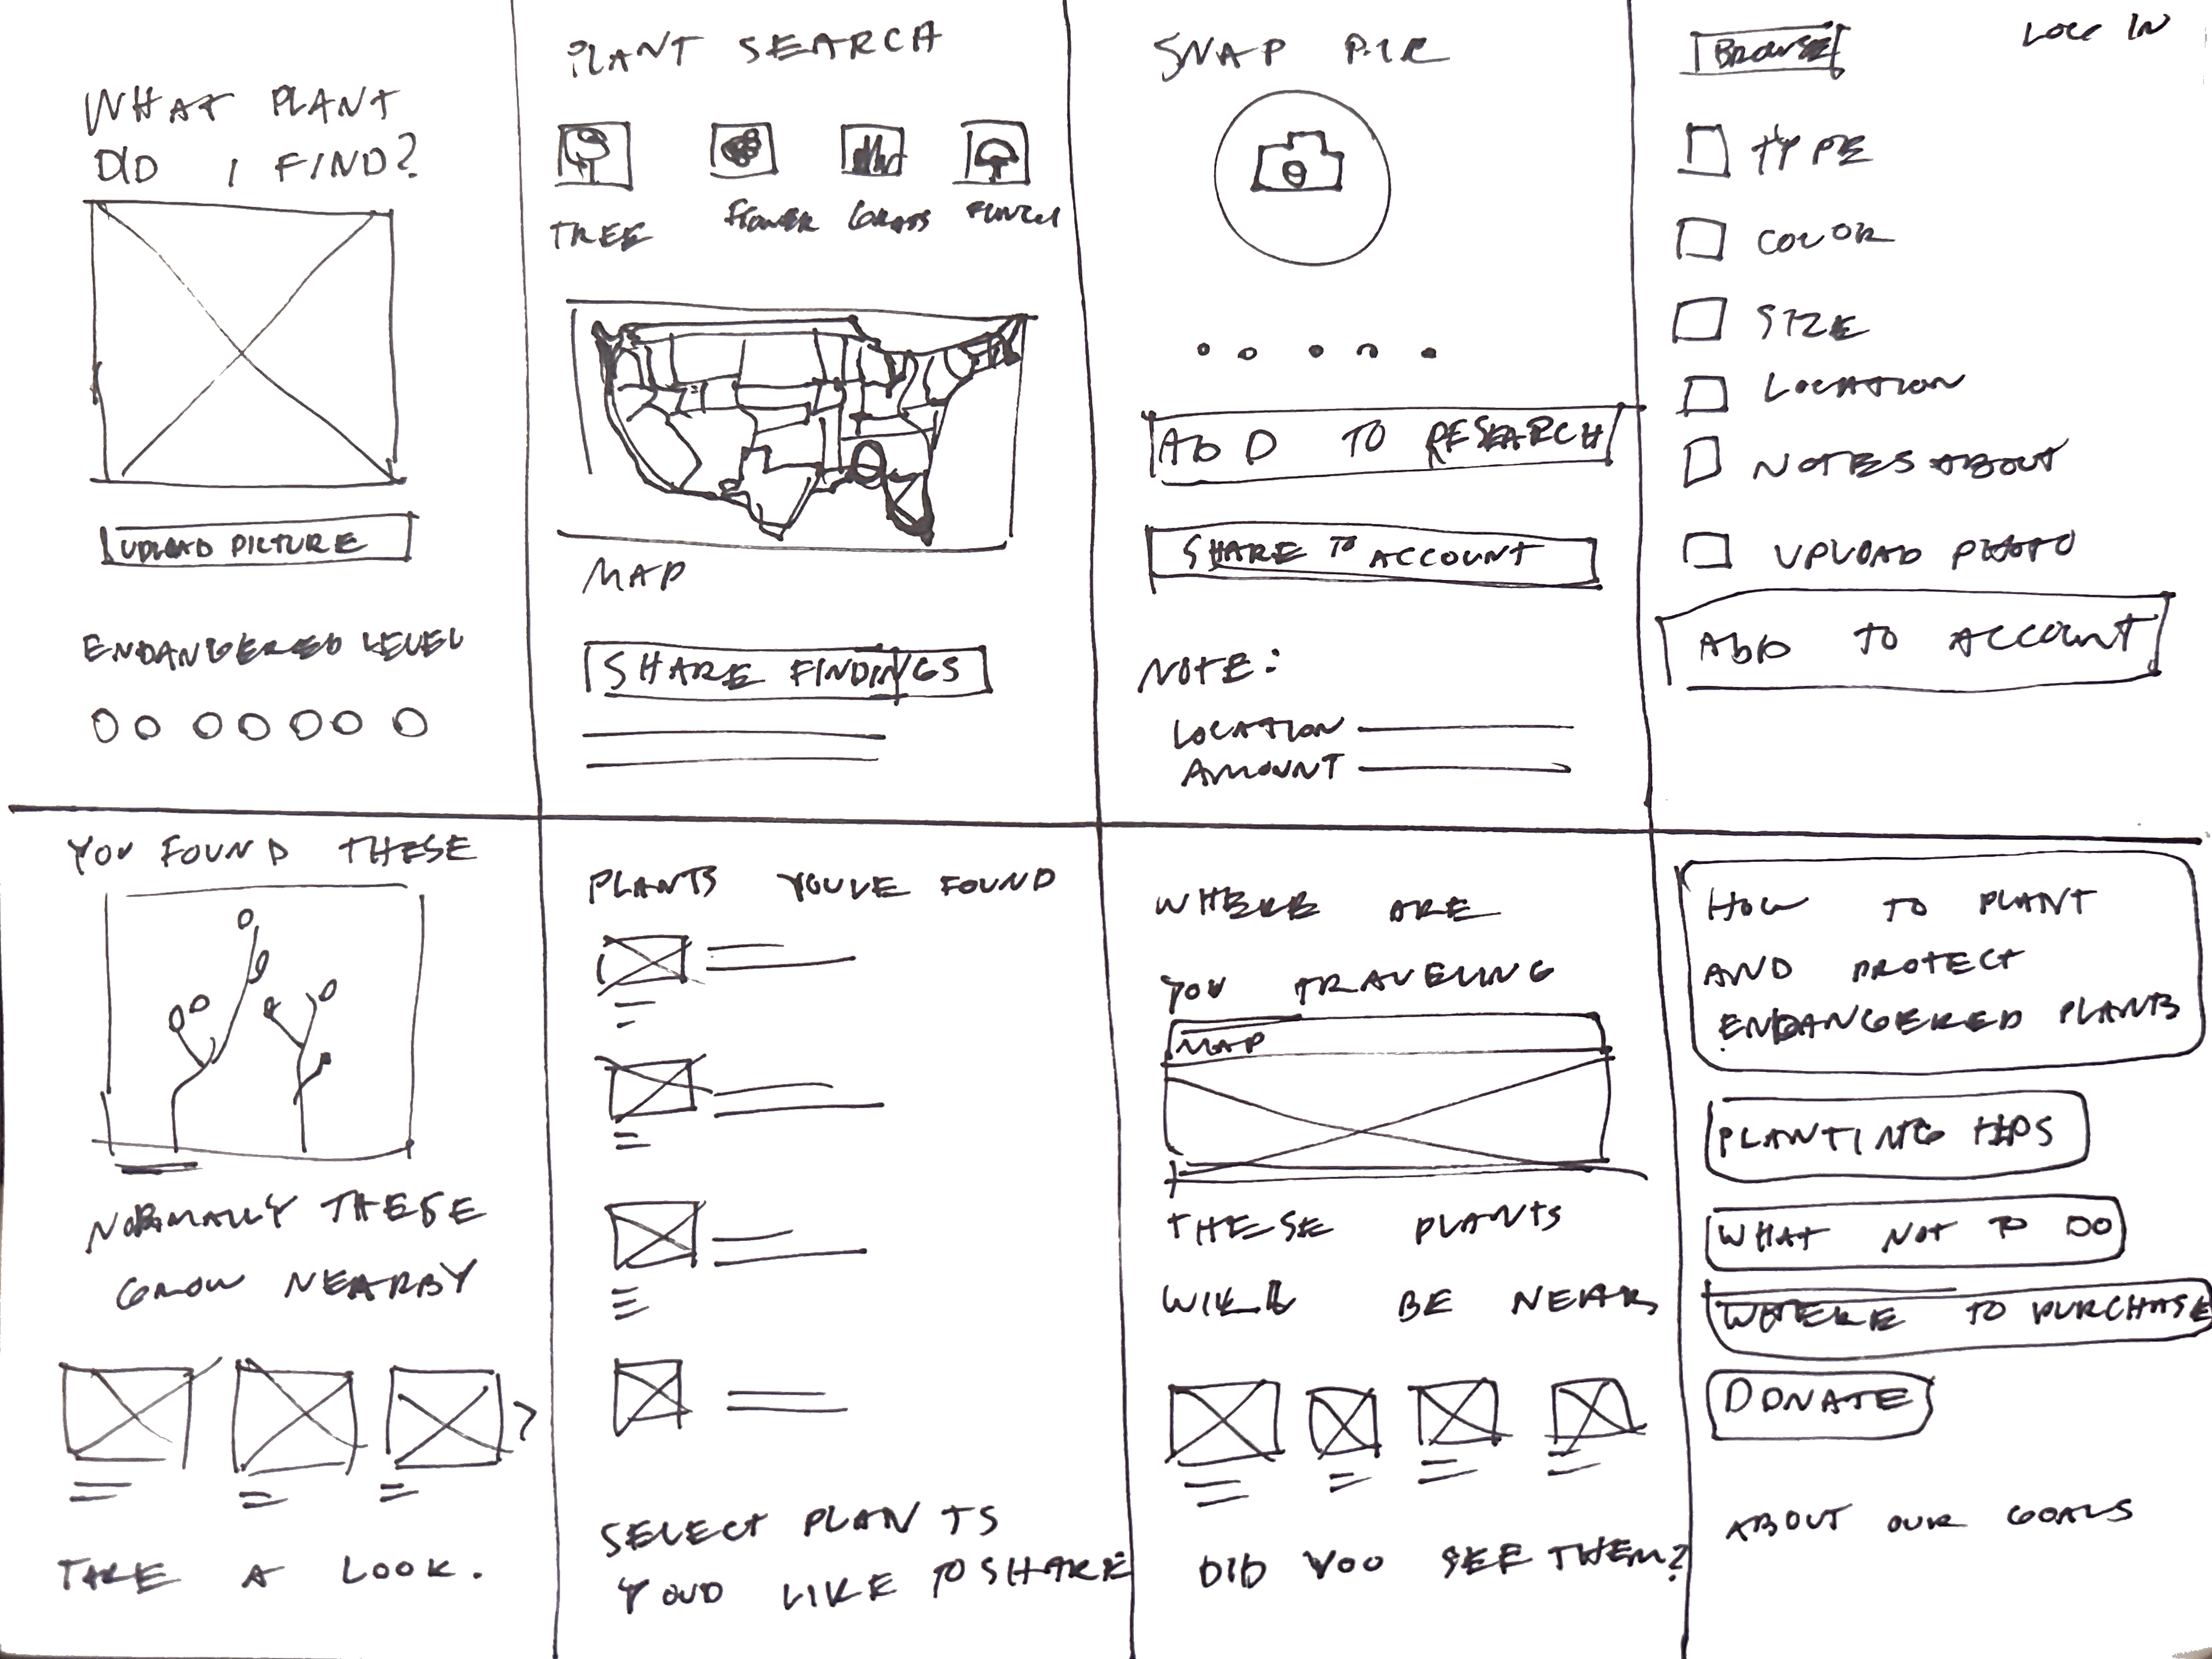 WHAT PLANT
DID I FIND?
UPLOAD PICTURE
ENDANGERED LEVEL
PLANT SEARCH
TREE
FLOWER
GRASS
MAP
SHARE FINDINGS
SNAP PIC
ADD TO RESEARCH
SHARE TO ACCOUNT
NOTE:
LOCATION
AMOUNT
BROWSE
LOG IN
TYPE
COLOR
SIZE
LOCATION
NOTES ABOUT
UPLOAD PHOTO
ADD TO ACCOUNT
YOU FOUND THESE
NORMALLY THESE
GROW NEARBY
TAKE A LOOK.
PLANTS YOUVE FOUND
SELECT PLANTS
YOUD LIKE TO SHARE
WHERE ARE
YOU TRAVELING
MAP
THESE PLANTS
WILL BE NEAR
DID YOU SEE THEM?
HOW TO PLANT
AND PROTECT
ENDANGERED PLANTS
PLANTING TIPS
WHAT NOT TO DO
WHERE TO PURCHASE
DONATE
ABOUT OUR GOALS